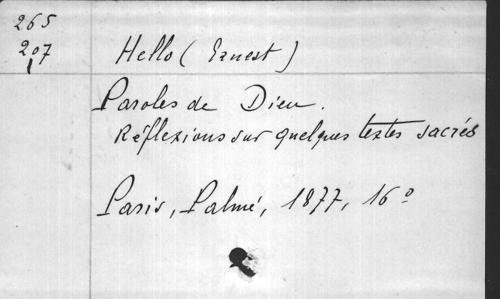 265
207
1
Hello (Ernest)
Paroles de Dieu.
Réflexions sur quelques textes sacrés
Paris, Palmé, 1877, 16°